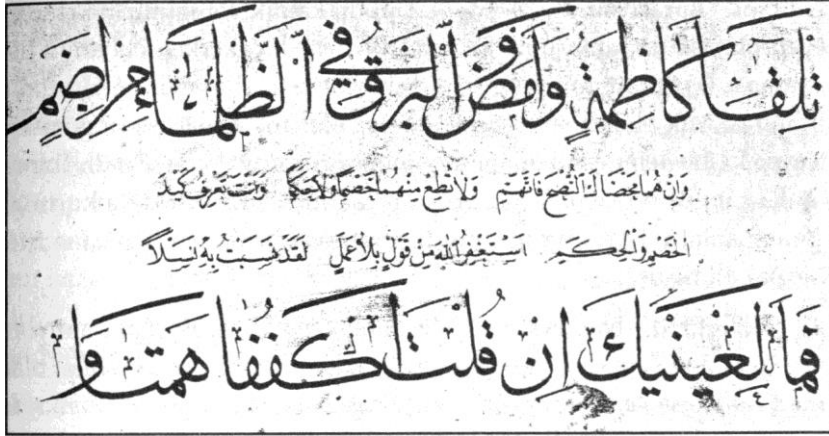 تلقاء كاظمة وأومض البرق في الظلماء من إضم
وان هما محضاك النصح فاتهم ولا تطع منهما خصما ولا حكما وانت تعرف كيد
الخصم والحكم استغفر الله من قول بلا عمل لقد نسبت به نسلاً
فما لعينيك ان قلت اكففا همتا و